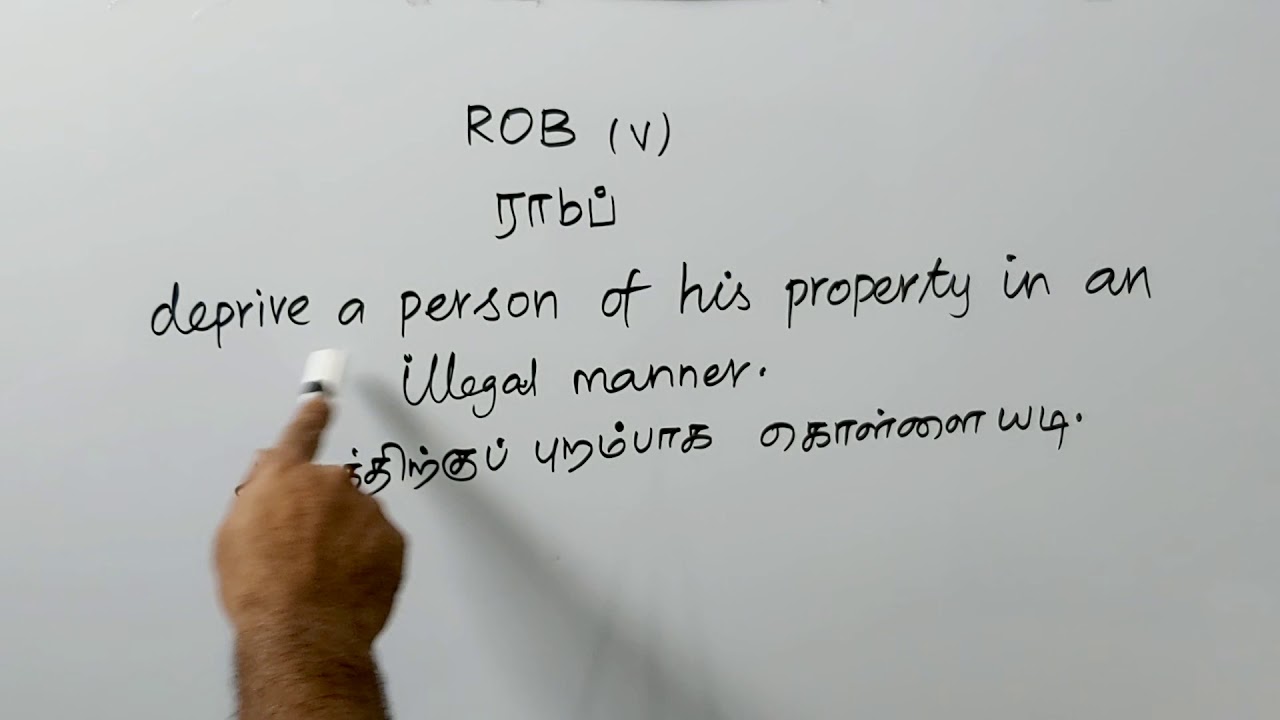 ROB (V)
ராbப்
deprive a person of his property in an
illegal manner.
புறம்பாக கொள்ளையடி.